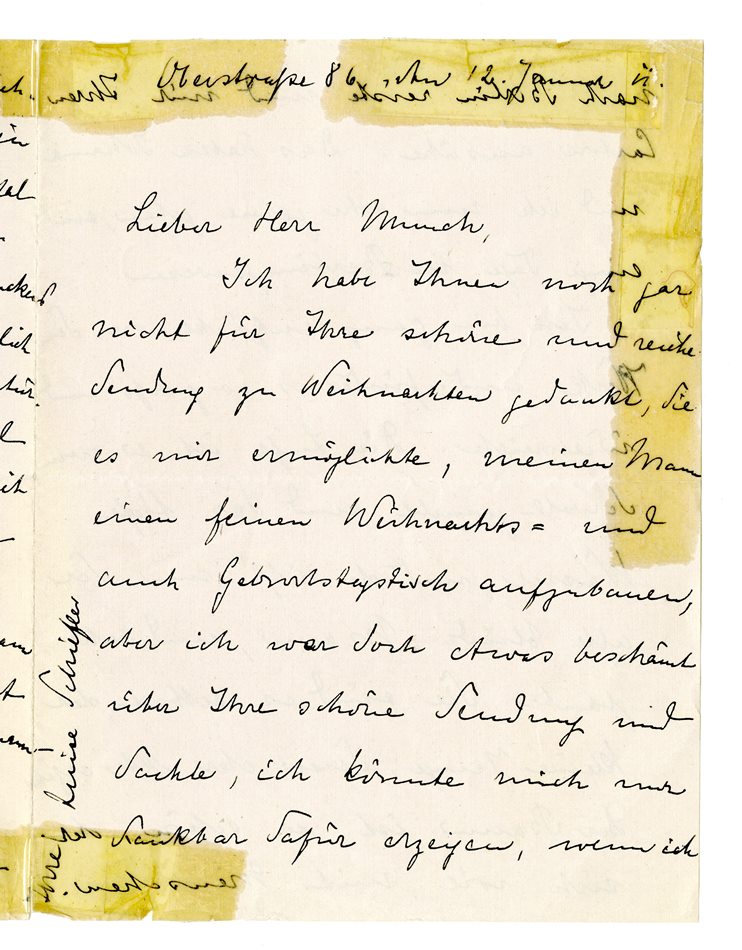 Oberstraße 86, den 12. Januar
Lieber Herr Munch,
Ich habe Ihnen noch gar
nicht für Ihre schöne und reiche
Sendung zu Weihnachten gedankt, die
es mir ermöglichte, meinen Mann
einen feinen Weihnachts= und
auch Geburtstagstisch aufzubauen,
aber ich war doch etwas beschämt
über Ihre schöne Sendung und
dachte, ich könnte mich nur
dankbar dafür erzeigen, wenn ich
Ihre Luise Schiefler